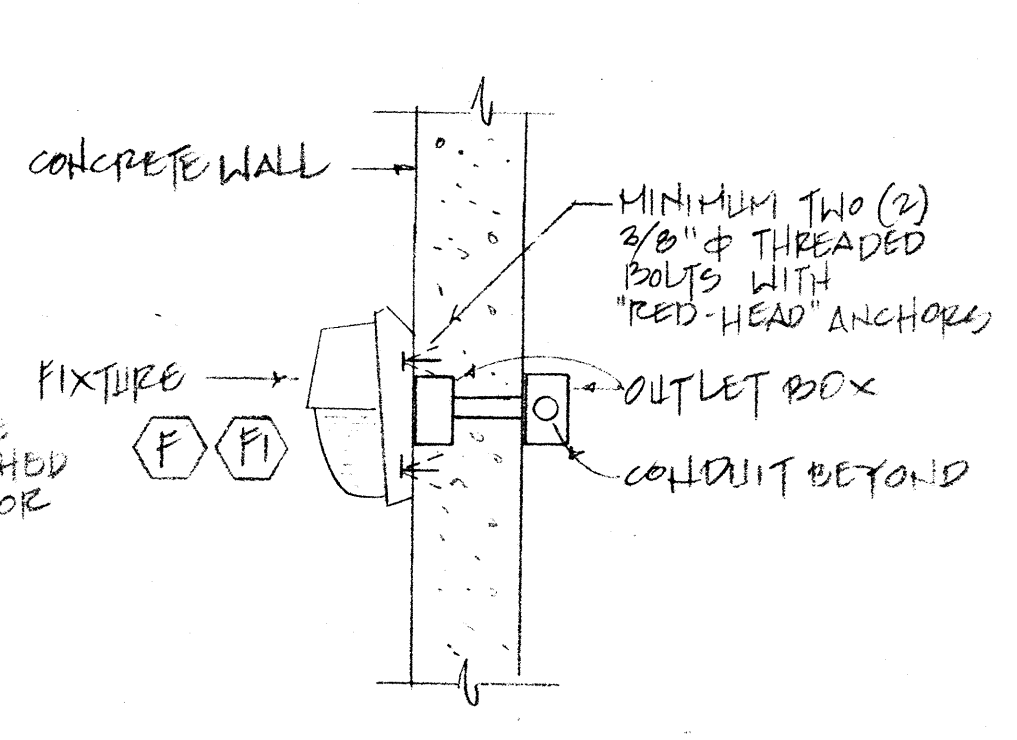 CONCRETE WALL
MINIMUM TWO (2)
3/8" Φ THREADED
BOLTS WITH
"RED-HEAD" ANCHORS
FIXTURE
F F1
OUTLET BOX
CONDUIT BEYOND
OR